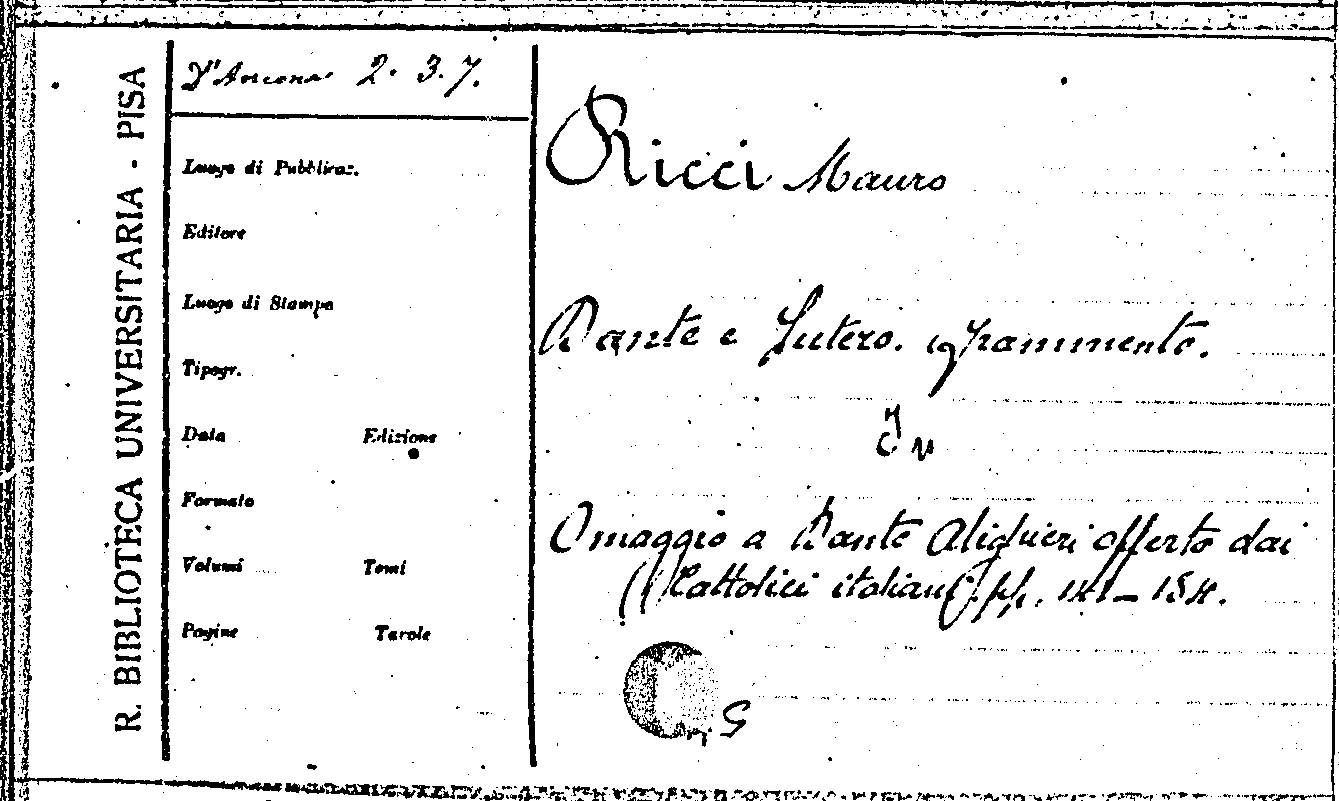 R. BIBLIOTECA UNIVERSITARIA - PISA
D'Ancona 2. 3. 7.
Luogo di Pubblicaz.
Editore
Luogo di Stampa
Tipogr.
Data Edizione
Formato
Volumi Tomi
Pagine Tavole
Ricci Mauro
Dante e Lutero.
In
Omaggio a Dante Alighieri offerto dai
Cattolici italiani pp. 141-154.